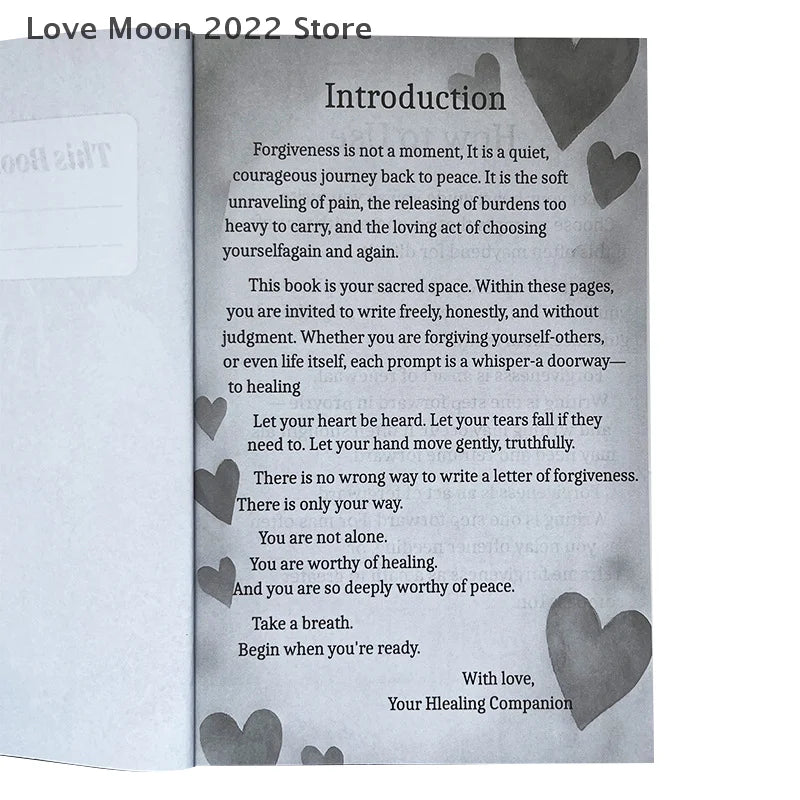 Love Moon 2022 Store
This Boo
Introduction
Forgiveness is not a moment, It is a quiet,
courageous journey back to peace. It is the soft
unraveling of pain, the releasing of burdens too
heavy to carry, and the loving act of choosing
yourselfagain and again.
This book is your sacred space. Within these pages,
you are invited to write freely, honestly, and without
judgment. Whether you are forgiving yourself-others,
or even life itself, each prompt is a whisper-a doorway—
to healing
Let your heart be heard. Let your tears fall if they
need to. Let your hand move gently, truthfully.
There is no wrong way to write a letter of forgiveness.
There is only your way.
You are not alone.
You are worthy of healing.
And you are so deeply worthy of peace.
Take a breath.
Begin when you're ready.
With love,
Your Hlealing Companion